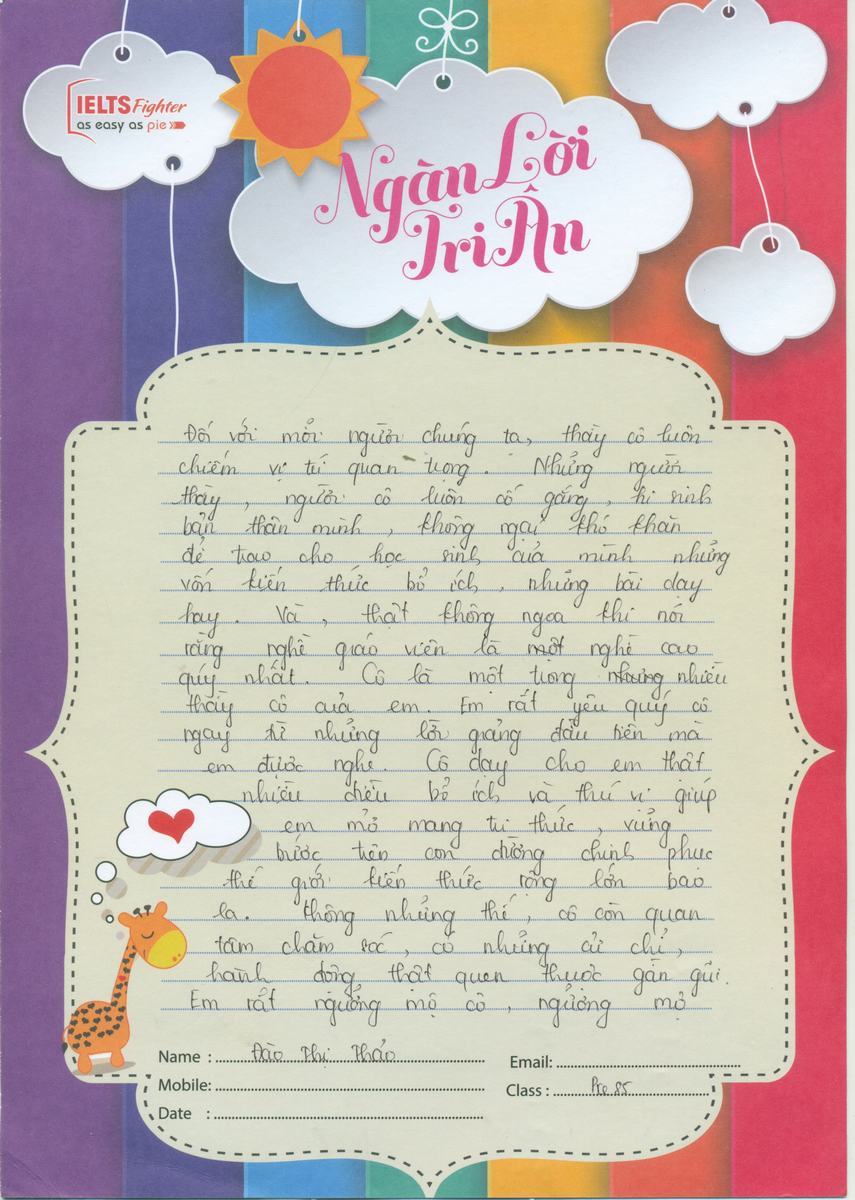 IELTS Fighter
as easy as pie
Ngàn Lời
Tri Ân
Đối với mỗi người chúng ta, thầy cô luôn
chiếm vị trí quan trọng. Những người
thầy, người cô luôn cố gắng, hi sinh
bản thân mình, không ngại khó khăn
để trao cho học sinh của mình những
vốn kiến thức bổ ích, những bài dạy
hay. Và, thật không ngoa khi nói
rằng nghề giáo viên là một nghề cao
quý nhất. Cô là một trong những nhiều
thầy cô của em. Em rất yêu quý cô
ngay từ những lời giảng đầu tiên mà
em được nghe. Cô dạy cho em thật
nhiều điều bổ ích và thú vị giúp
em mở mang tri thức, vững
bước trên con đường chinh phục
thế giới kiến thức rộng lớn bao
la. Không những thế, cô còn quan
tâm chăm sóc, có những cử chỉ,
hành động thật quen thuộc gần gũi.
Em rất ngưỡng mộ cô, ngưỡng mộ
Name : Đào Thị Thảo
Email:
Mobile:
Class : Pre 85
Date :